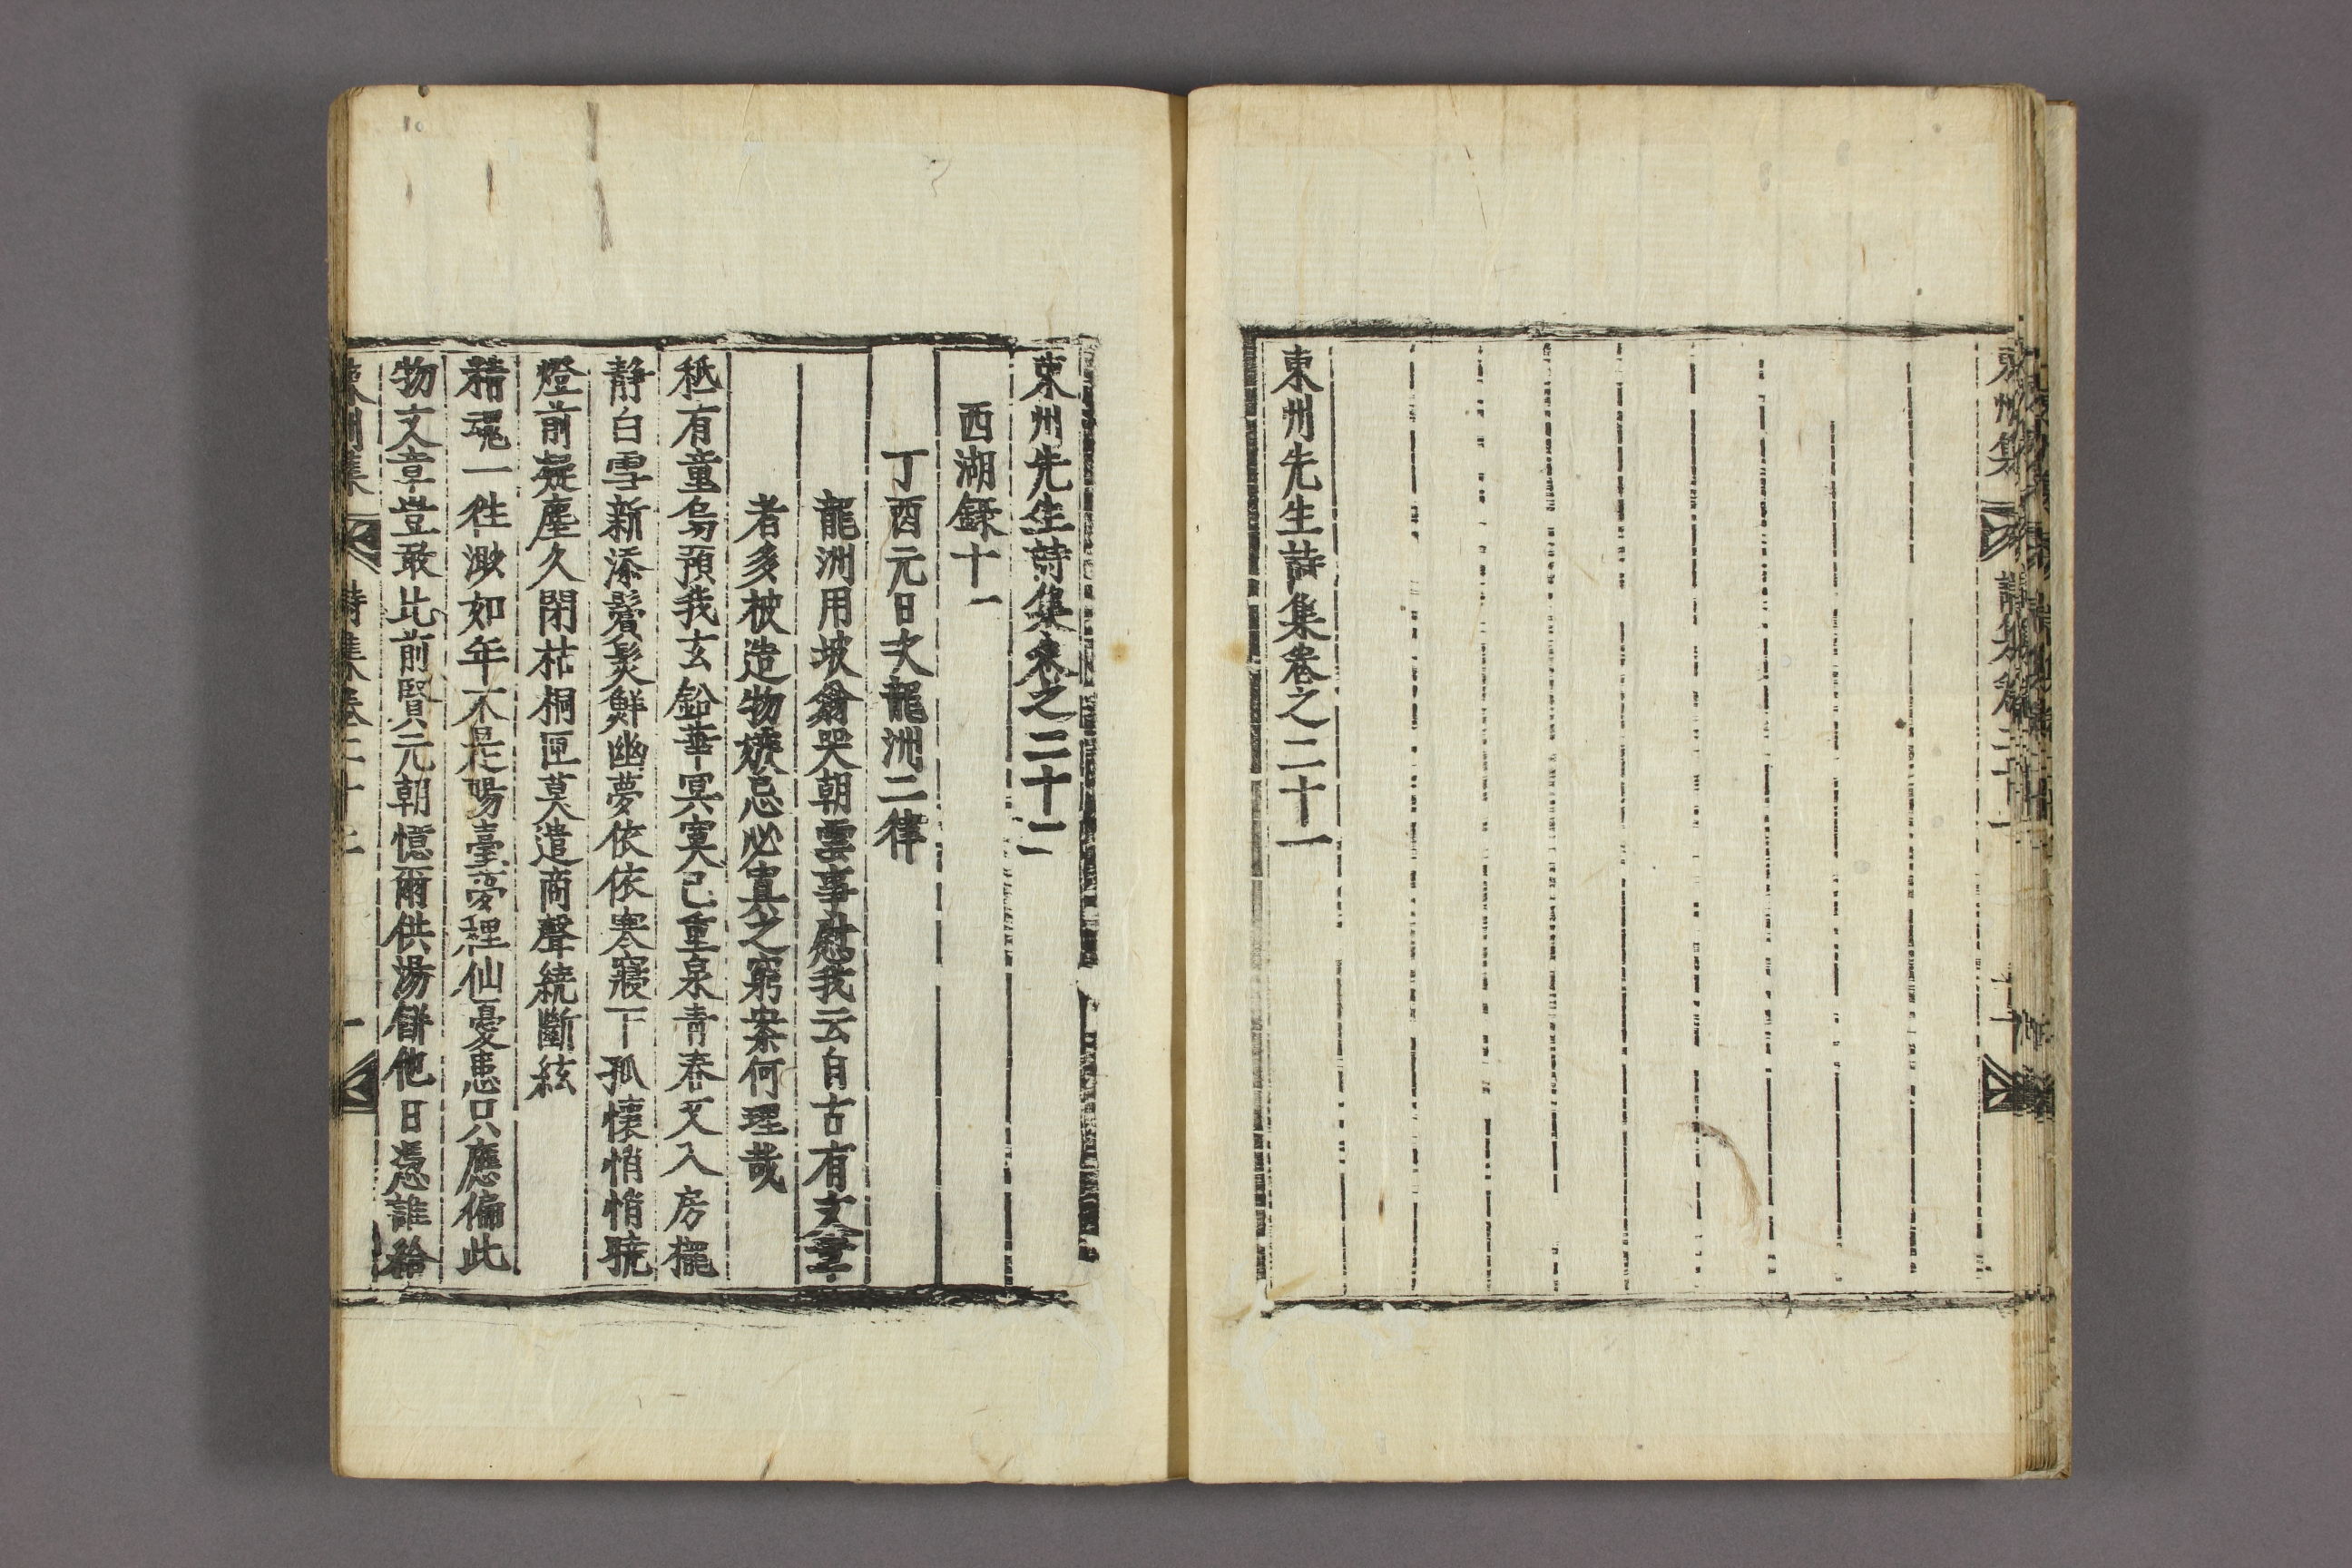 東州集
詩集卷二十一
東州先生詩集卷之二十一
東州先生詩集卷之二十二
西湖錄十一
丁酉元日次龍洲二律
龍洲用坡翁哭朝雲事慰我云自古有文章
者多被造物嫉忌必寘之窮案何理哉
秪有童烏預我玄鉛華冥寞已重泉青春又入房櫳
靜白雪新添鬢髮鮮幽夢依依寒寢下孤懷悄悄曉
燈前凝塵久閉枯桐匣莫遣商聲續斷絃
精魂一徃澉如年不是陽臺夢裡仙憂患只應偏此
物文章豈敢比前賢元朝憶爾供湯餠他日憑誰給
東州集
詩集卷二十二
一